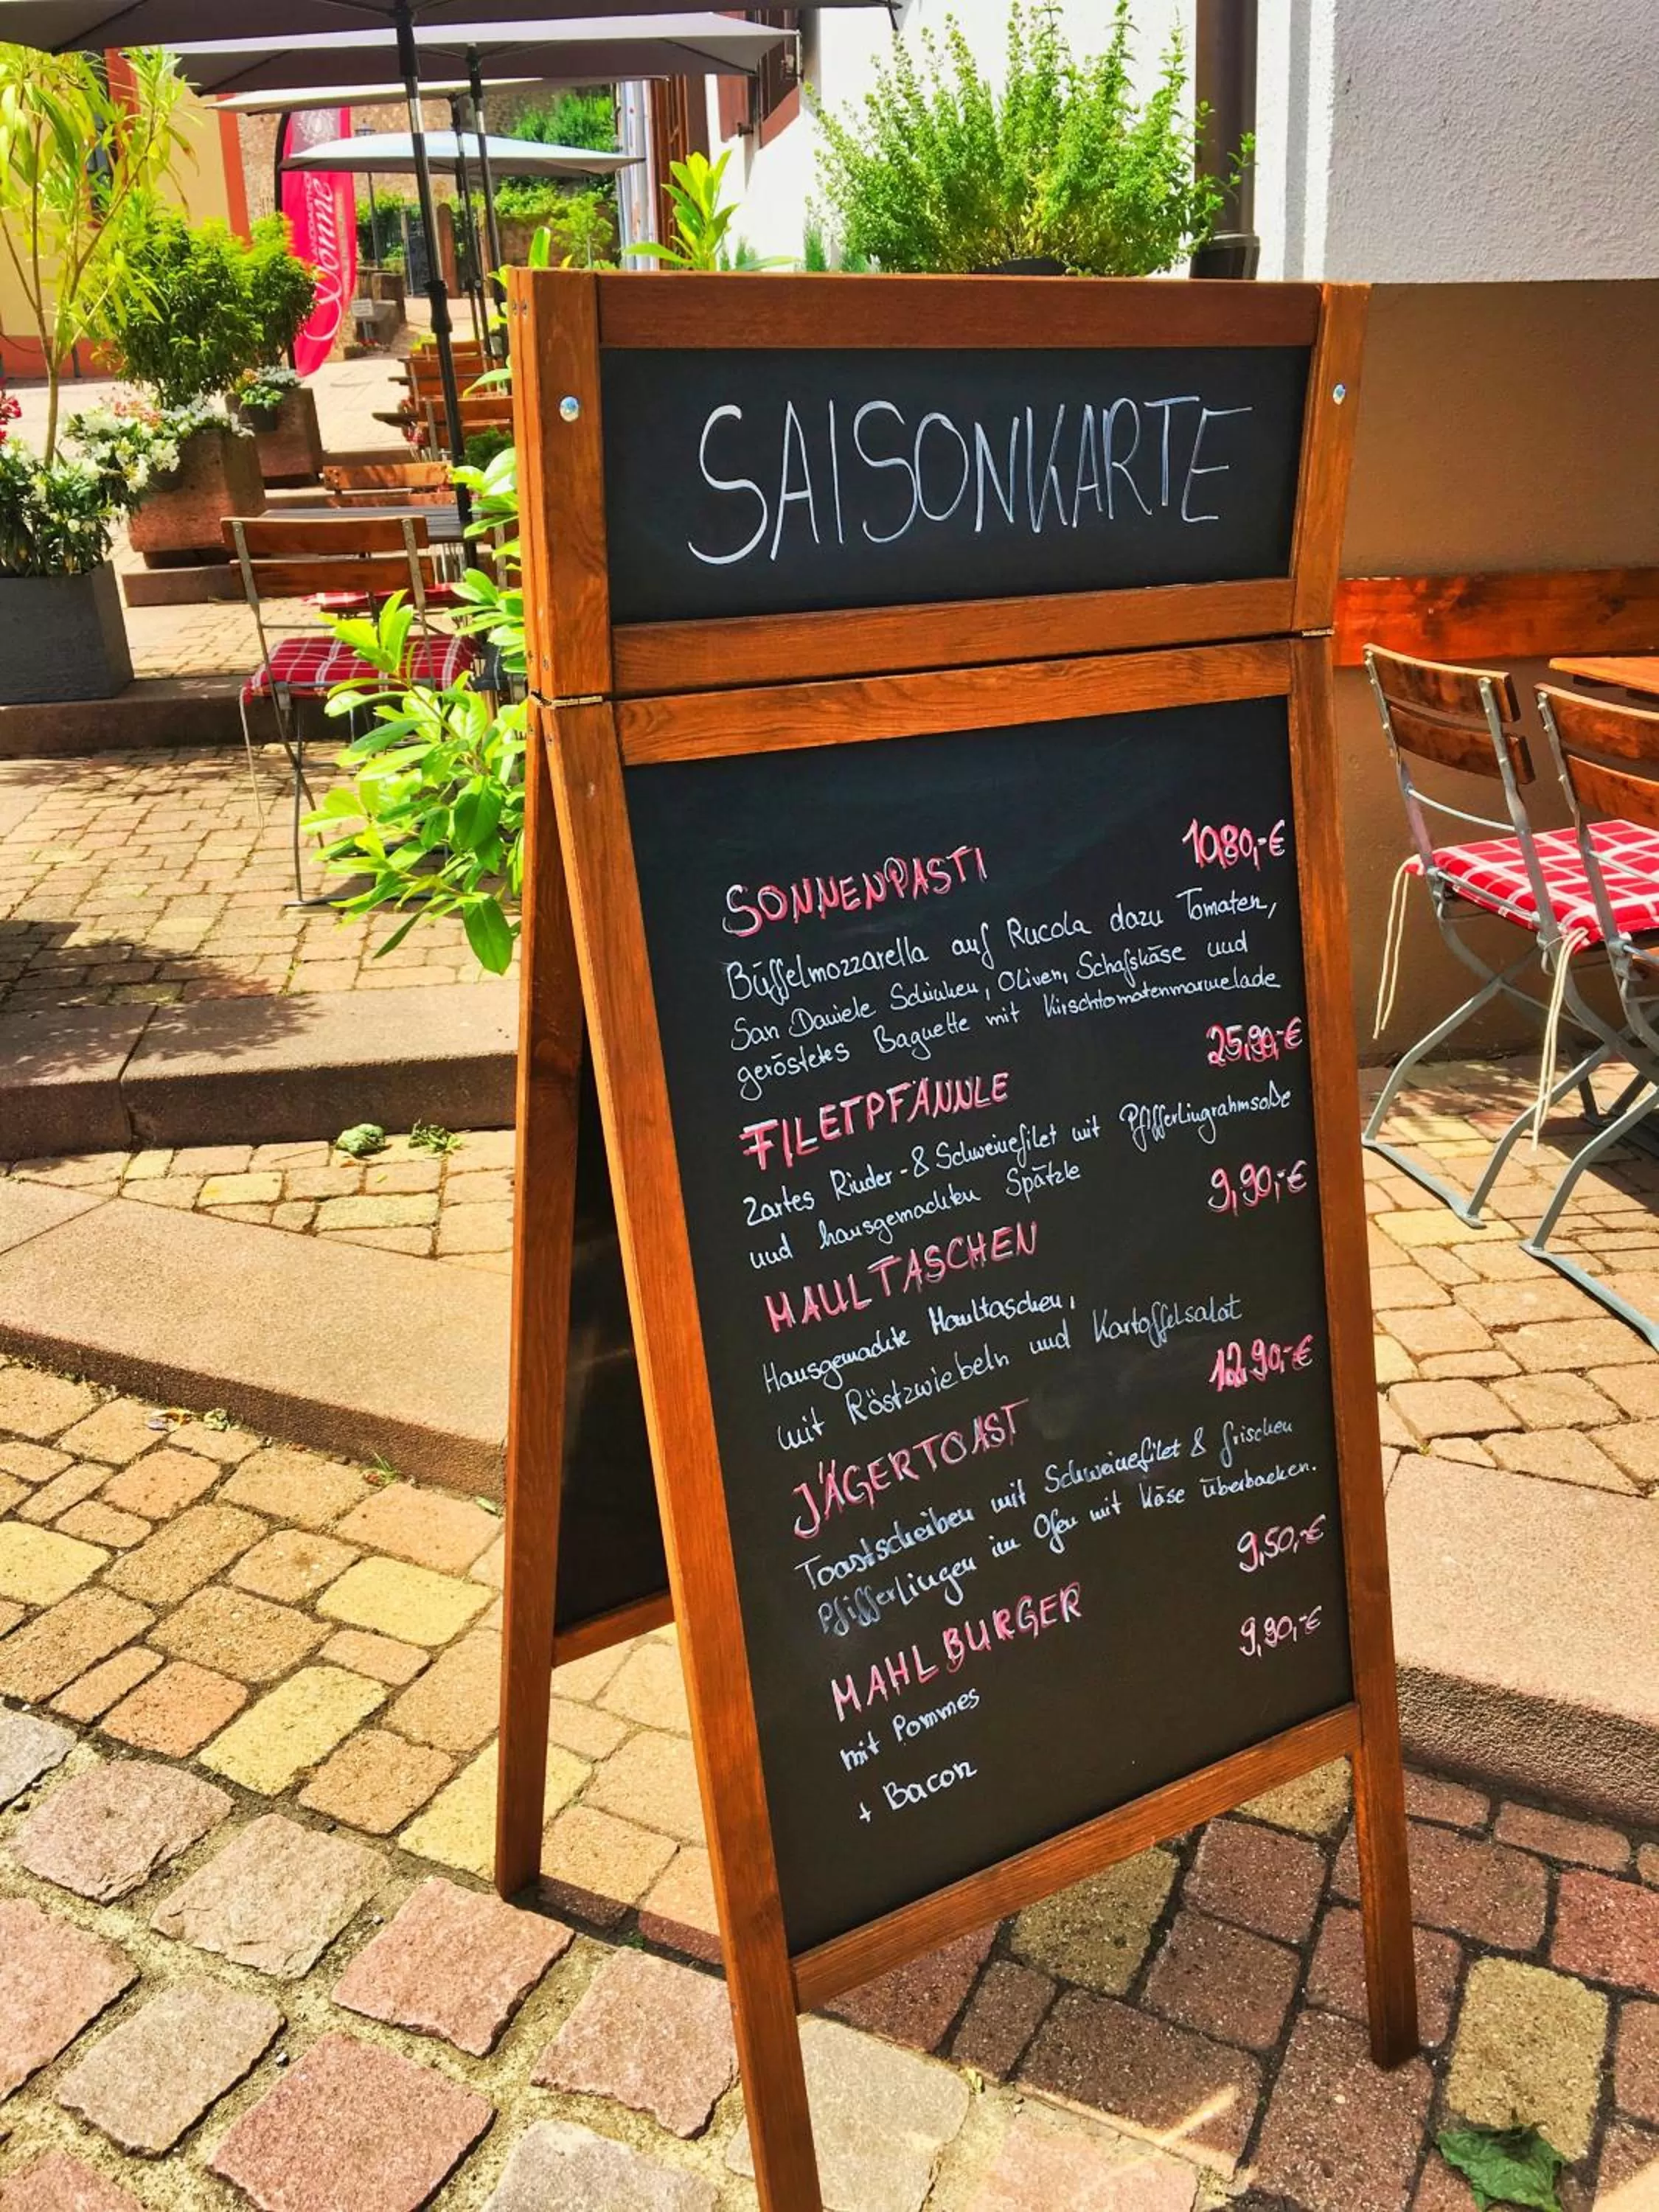 Sonne
SAISONKARTE
SONNENPASTI 10,80,-€
Büffelmozzarella auf Rucola dazu Tomaten,
San Daniele Schinken, Oliven, Schafskäse und
geröstetes Baguette mit Kirschtomatenmarmelade
FILETPFÄNNLE 25,90,-€
Zartes Rinder- & Schweinefilet mit Pfifferlingrahmsoße
und hausgemachten Spätzle
MAULTASCHEN 9,90,-€
Hausgemachte Maultaschen,
mit Röstzwiebeln und Kartoffelsalat
JÄGERTOAST 12,90,-€
Toastscheiben mit Schweinefilet & frischen
Pfifferlingen im Ofen mit Käse überbacken.
MAHLBURGER 9,50,-€
mit Pommes
+ Bacon 9,90,-€